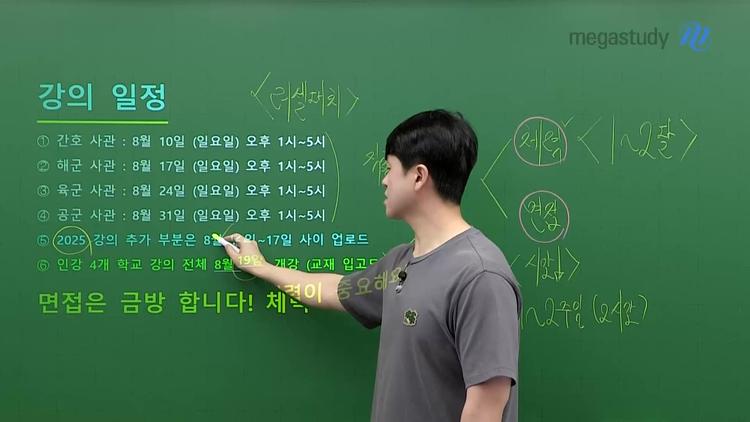 megastudy
강의 일정
<러셀대치>
① 간호 사관 : 8월 10일 (일요일) 오후 1시~5시
② 해군 사관 : 8월 17일 (일요일) 오후 1시~5시
③ 육군 사관 : 8월 24일 (일요일) 오후 1시~5시
④ 공군 사관 : 8월 31일 (일요일) 오후 1시~5시
⑤ 2025 강의 추가 부분은 일~17일 사이 업로드
⑥ 인강 4개 학교 강의 전체 8월 19일 개강 (교재 입고
면접은 금방 합니다! 체력이 중요해요
체력 <1~2달>
면접
1~2주일 (2시간)